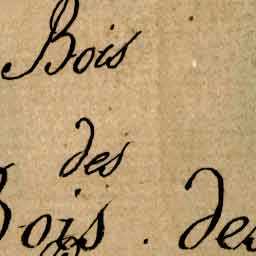 Bois
des
Bois . des